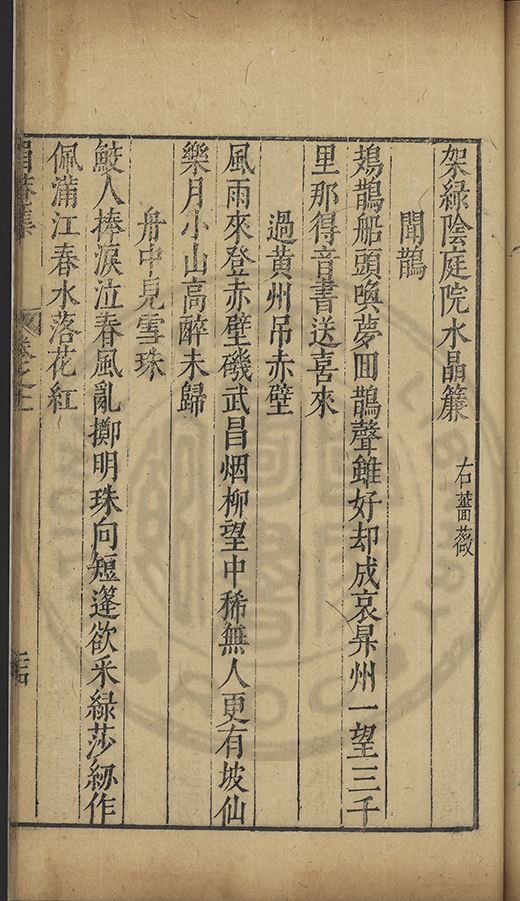 架綠陰庭院水晶簾 右薔薇
聞鵲
鳷鵲船頭喚夢回鵲聲雖好却成哀昇州一望三千
里那得音書送喜來
過黃州吊赤壁
風雨來登赤壁磯武昌烟柳望中稀無人更有坡仙
樂月小山高醉未歸
舟中見雪珠
鮫人捧淚泣春風亂擲明珠向短篷欲采綠莎紉作
佩滿江春水落花紅